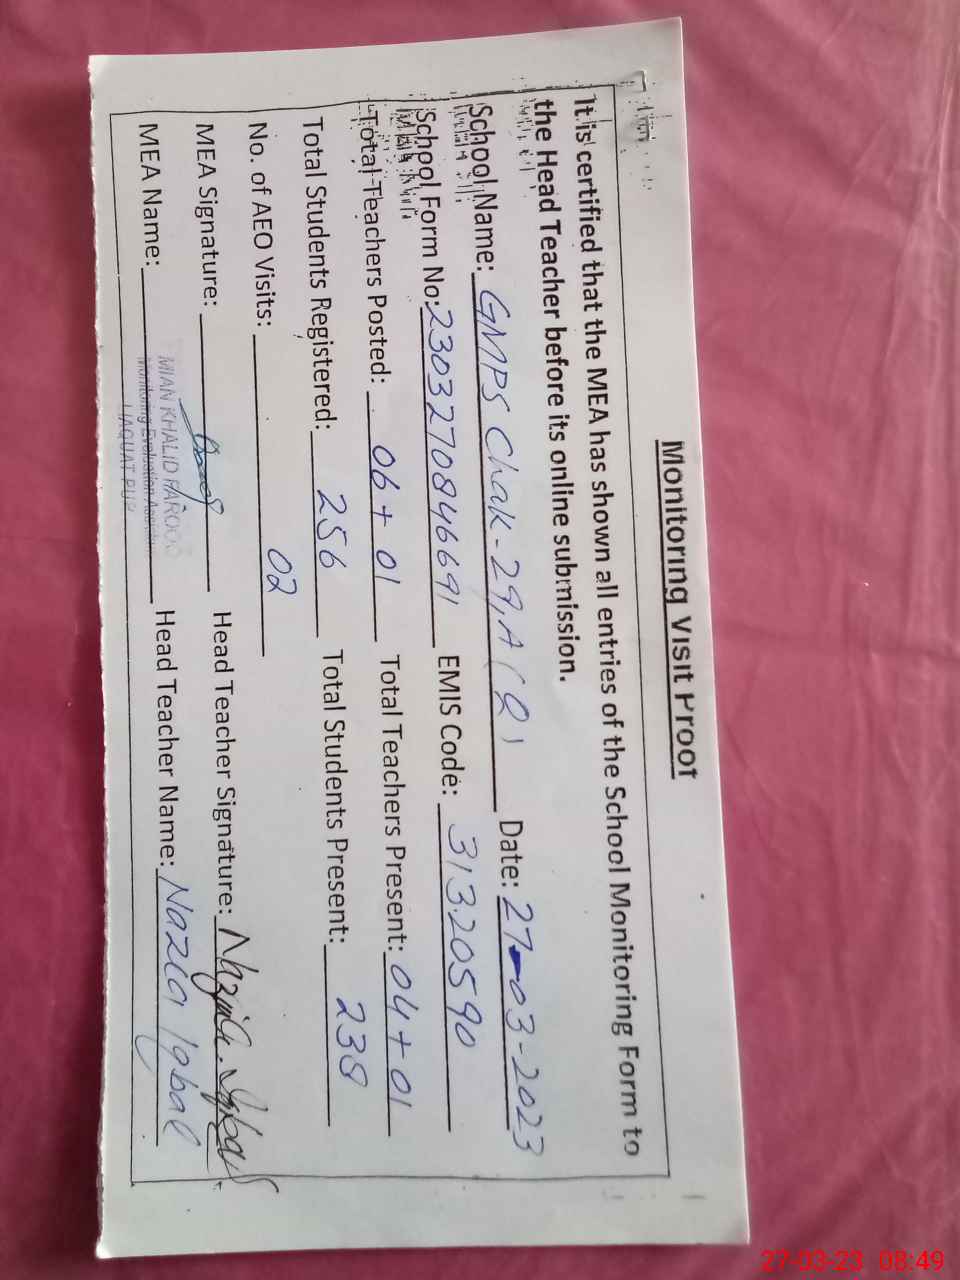 Monitoring Visit Proof
It is certified that the MEA has shown all entries of the School Monitoring Form to
the Head Teacher before its online submission.
School Name: GMPS Chak-29,A(Q) Date: 27-03-2023
School Form No: 2303270846691 EMIS Code: 31320590
Total Teachers Posted: 06+01 Total Teachers Present: 04+01
Total Students Registered: 256 Total Students Present: 238
No. of AEO Visits: 02
MEA Signature: Head Teacher Signature: Nazia Iqbal
MEA Name: MIAN KHALID FAROOQ Head Teacher Name: Nazia Iqbal
Monitoring Evaluation Assistant
LIAQUAT PUR
27-03-23 08:49